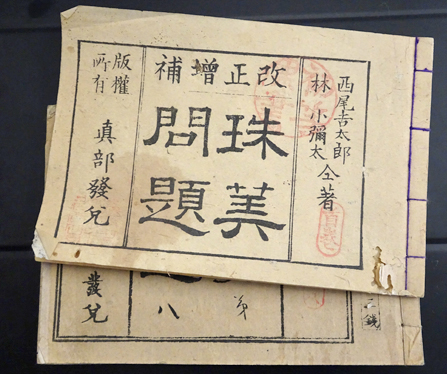 改正增補
西尾吉太郎
林 小彌太 仝著
珠筭
問題
版權
所有
真部發兌
三錢
第
八
發兌